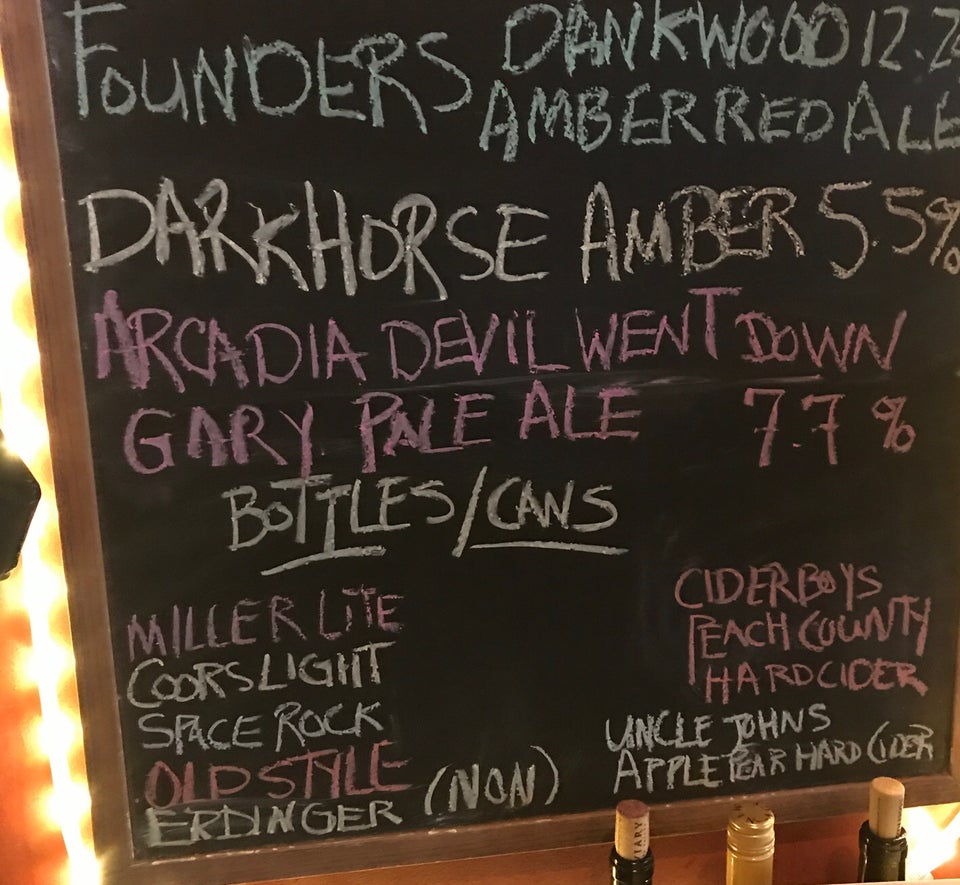 FOUNDERS DANKWOOD 12.2
AMBER RED ALE
DARKHORSE AMBER 5.5%
ARCADIA DEVIL WENT DOWN
GARY PALE ALE 7.7%
BOTTLES/CANS
MILLER LITE
COORS LIGHT
SPACE ROCK
OLD STYLE
ERDINGER (NON)
CIDERBOYS
PEACH COUNTY
HARD CIDER
UNCLE JOHNS
APPLE PEAR HARD CIDER